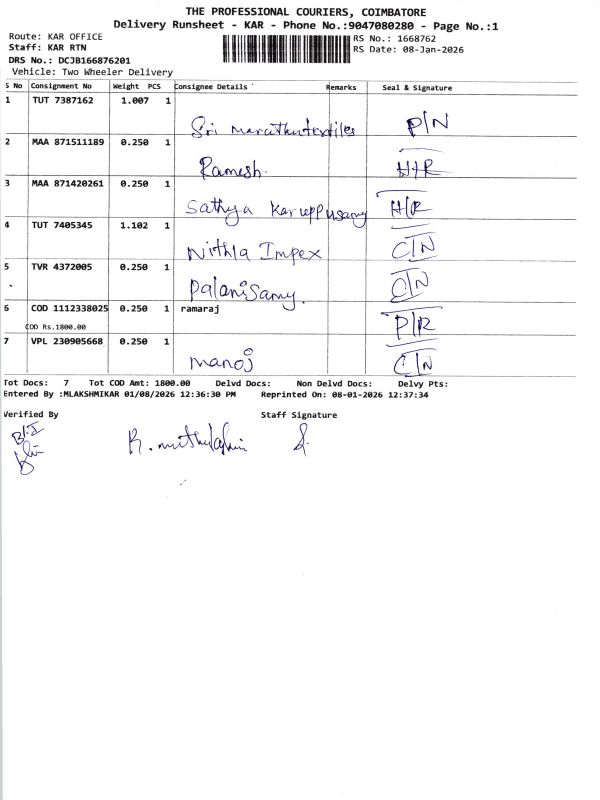 THE PROFESSIONAL COURIERS, COIMBATORE
Delivery Runsheet - KAR - Phone No.:9047080280 - Page No.:1
Route: KAR OFFICE
Staff: KAR RTN
DRS No.: DCJB166876201
Vehicle: Two Wheeler Delivery
RS No.: 1668762
RS Date: 08-Jan-2026
S No Consignment No Weight PCS Consignee Details Remarks Seal & Signature
1 TUT 7387162 1.007 1
Sri Maruthutextiles P/N
2 MAA 871511189 0.250 1
Ramesh. H/R
3 MAA 871420261 0.250 1
Sathya Karuppusamy H/R
4 TUT 7405345 1.102 1
Nithla Impex C/N
5 TVR 4372005 0.250 1
Palanisamy. C/N
6 COD 1112338025 0.250 1 ramaraj
COD Rs.1800.00 P/R
7 VPL 230905668 0.250 1
Manoj C/N
Tot Docs: 7 Tot COD Amt: 1800.00 Delvd Docs: Non Delvd Docs: Delvy Pts:
Entered By :MLAKSHMIKAR 01/08/2026 12:36:30 PM Reprinted On: 08-01-2026 12:37:34
Verified By Staff Signature